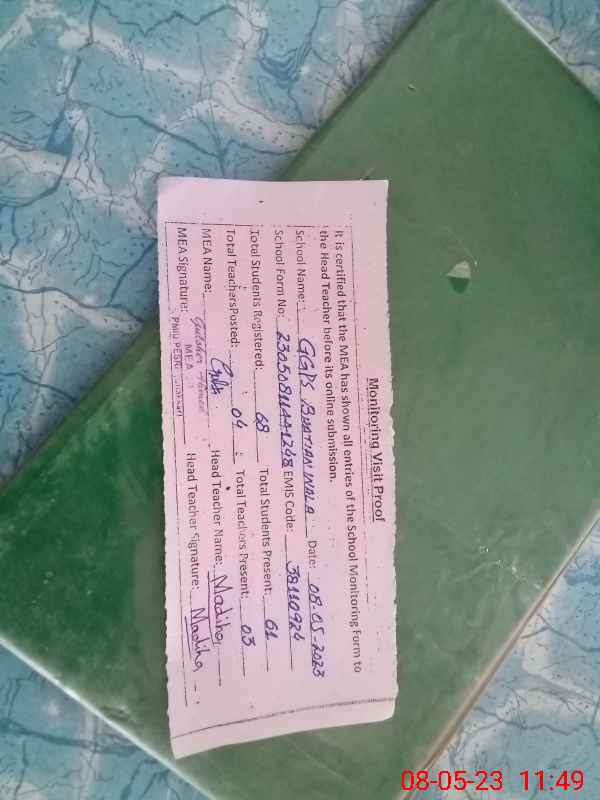 Monitoring Visit Proof
It is certified that the MEA has shown all entries of the School Monitoring Form to
the Head Teacher before its online submission.
School Name: GGPS BHATIAN WALA Date: 08.05-2023
School Form No: 2305081144-1248 EMIS Code: 38110924
Total Students Registered: 68 Total Students Present: 61
Total TeachersPosted: 04 Total Teachers Present: 03
MEA Name: Head Teacher Name: Madiha
MEA Signature: MEA Head Teacher Signature: Madiha
08-05-23 11:49